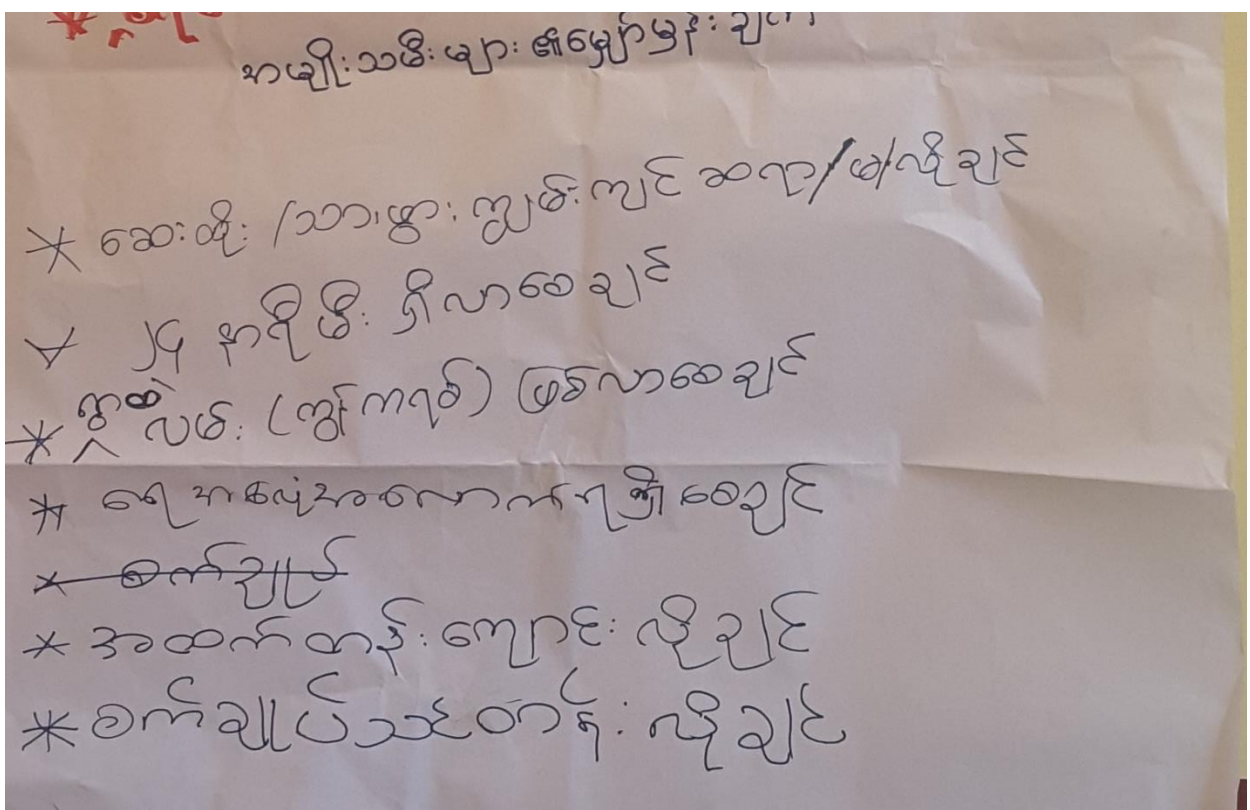 အမျိုးသမီးများ ၏မျှော်မှန်းချက်
* ဆေးထိုး /သားဖွား ကျွမ်းကျင် ဆရာ/မ/လိုချင်
* ၂၄ နာရီ မီး ရှိလာစေချင်
* ရွာထဲလမ်း (ကွန်ကရစ်) ဖြစ်လာစေချင်
* ရေ အလုံအလောက်ရရှိစေချင်
* စက်ချုပ်
* အထက်တန်းကျောင်း လိုချင်
* စက်ချုပ်သင်တန်း လိုချင်